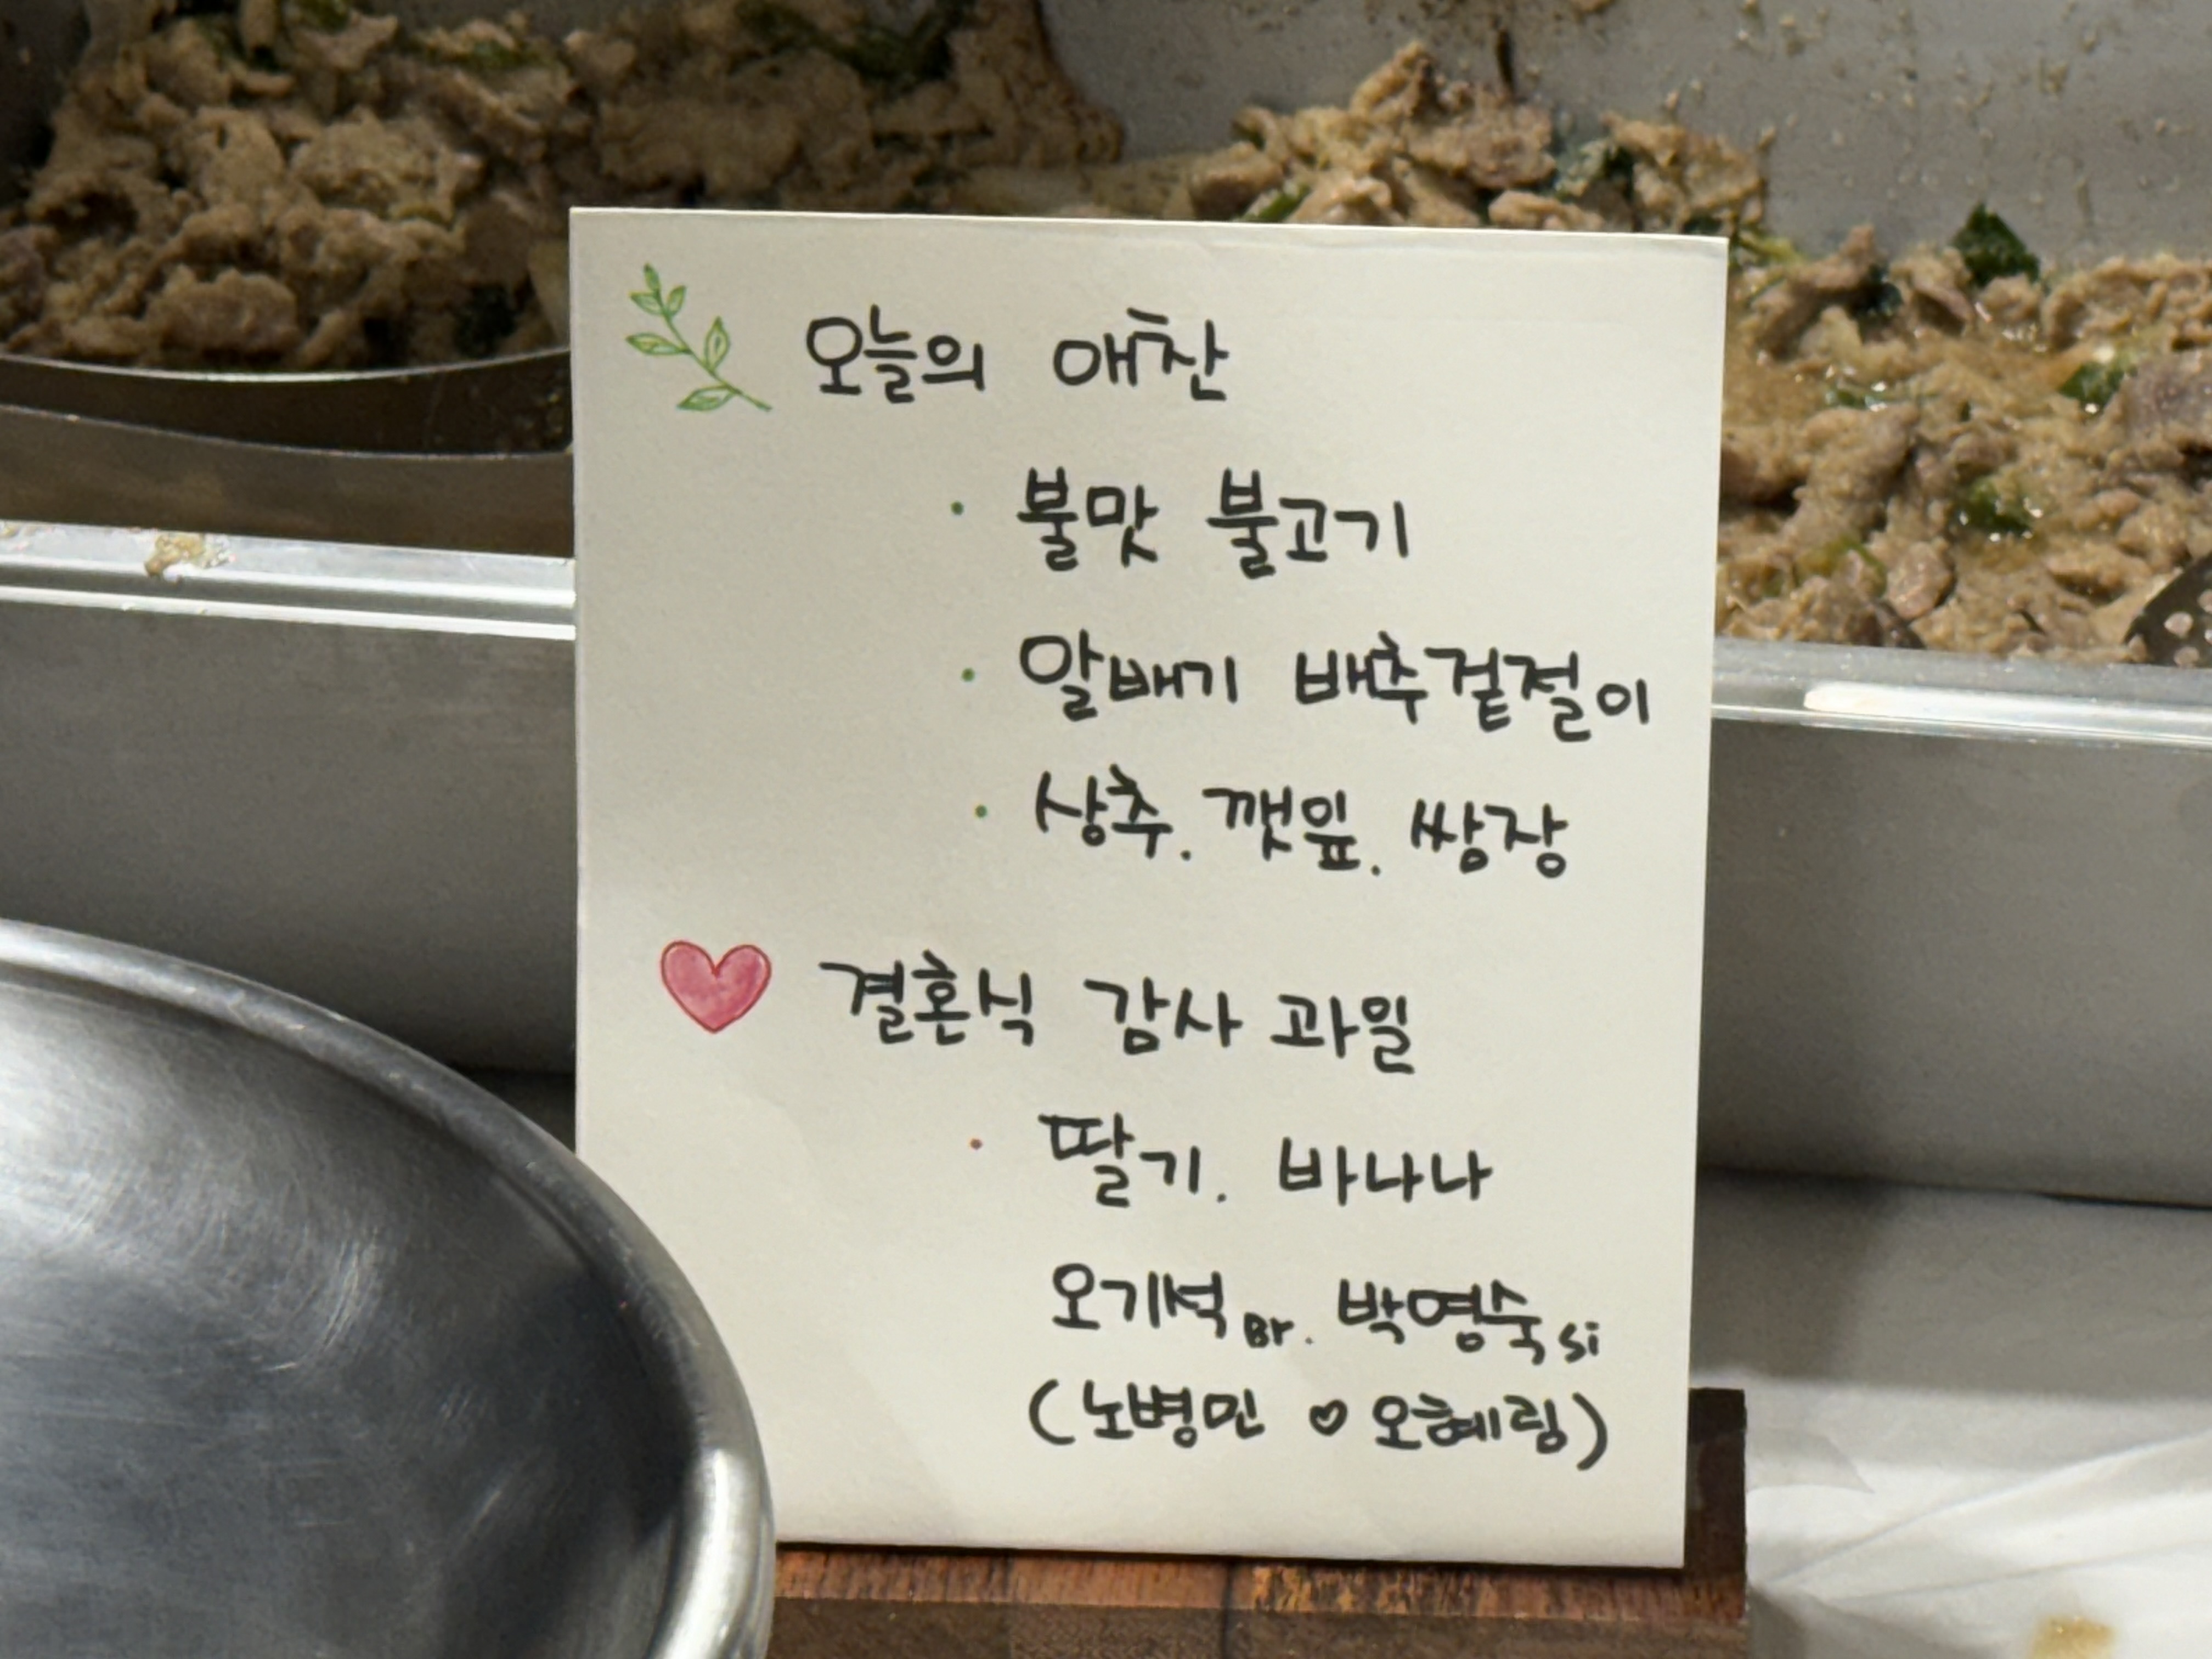 오늘의 애찬
· 불맛 불고기
· 알배기 배추겉절이
· 상추. 깻잎. 쌈장
결혼식 감사 과일
· 딸기. 바나나
오기석 Br. 박영숙 si
(노병민 ♡ 오혜림)